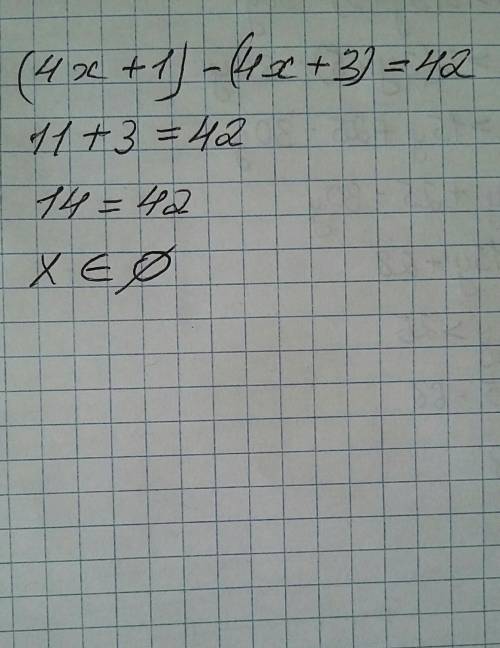 (4x+1)-(4x+3)=42
11+3=42
14=42
x ∈ ∅